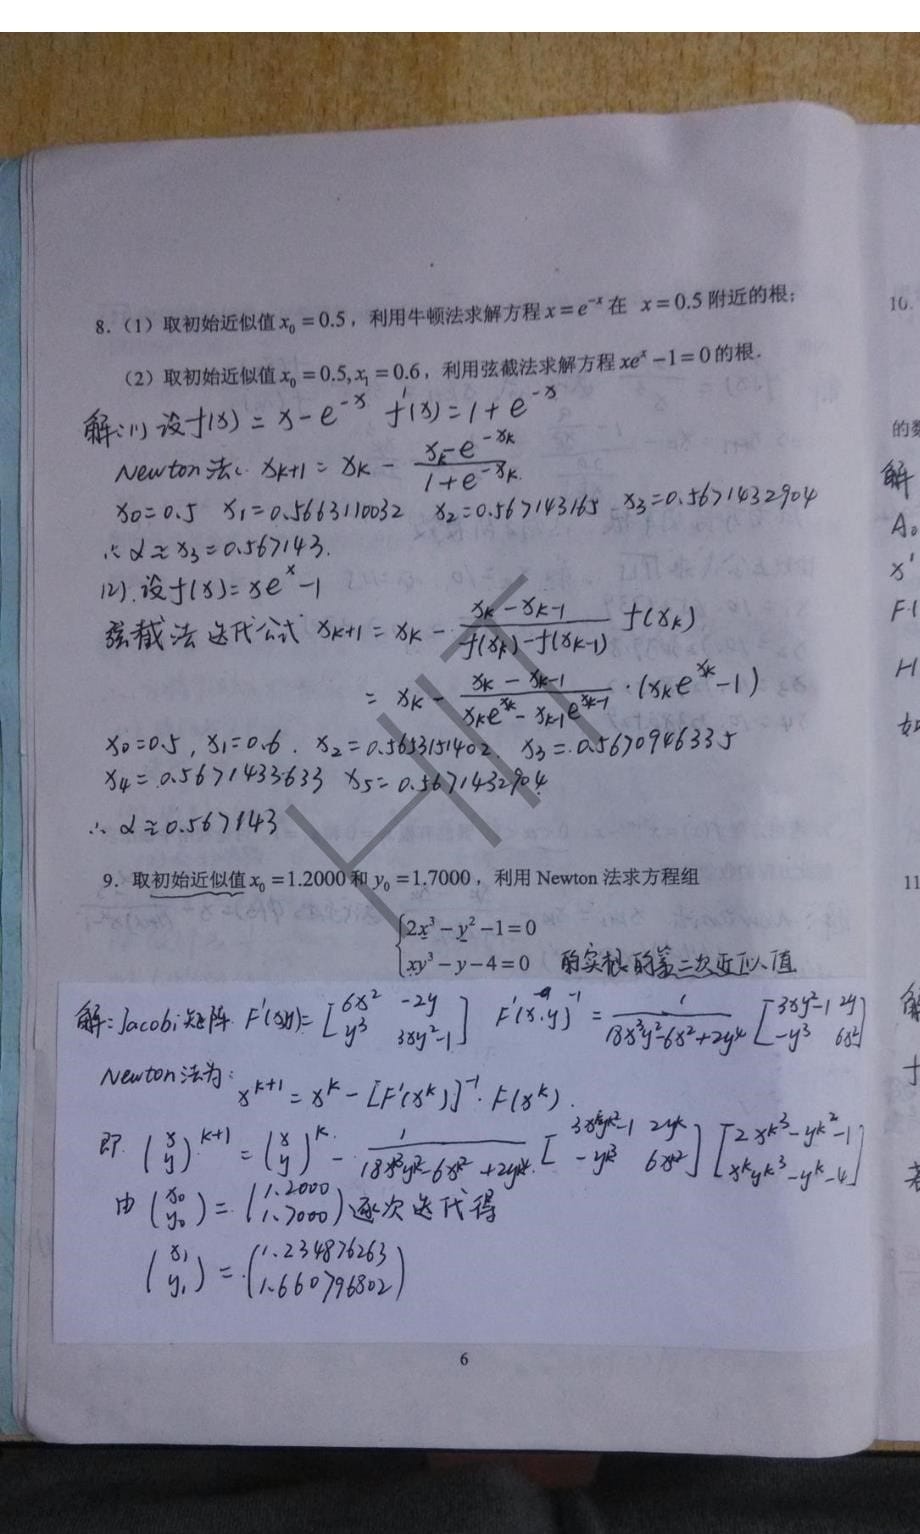 8.（1）取初始近似值 x₀ = 0.5，利用牛顿法求解方程 x = e^{-x} 在 x = 0.5 附近的根；
（2）取初始近似值 x₀ = 0.5, x₁ = 0.6，利用弦截法求解方程 xe^x − 1 = 0 的根．
解:(1) 设 f(x) = x − e^{-x} f'(x) = 1 + e^{-x}
Newton法: x_{k+1} = x_k − (x_k − e^{-x_k})/(1 + e^{-x_k})
x₀=0.5 x₁=0.5663110032 x₂=0.567143165 x₃=0.5671432904
∴ α ≈ x₃ = 0.567143.
(2). 设 f(x) = xe^x − 1
弦截法迭代公式 x_{k+1} = x_k − (x_k − x_{k-1})/(f(x_k) − f(x_{k-1})) f(x_k)
= x_k − (x_k − x_{k-1})/(x_k e^{x_k} − x_{k-1} e^{x_{k-1}}) · (x_k e^{x_k} − 1)
x₀=0.5, x₁=0.6. x₂=0.5653151402 x₃=0.5670946335
x₄=0.5671433633 x₅=0.5671432904
∴ α ≈ 0.567143
9. 取初始近似值 x₀ = 1.2000 和 y₀ = 1.7000，利用 Newton 法求方程组
{ 2x³ − y² − 1 = 0
xy³ − y − 4 = 0 的实根的第二次近似值
解: Jacobi矩阵 F'(x,y) = [6x² −2y; y³ 3xy²−1] F'(x,y)^{-1} = 1/(18x³y²−6x²+2y⁴) [3xy²−1 2y; −y³ 6x²]
Newton法为:
x^{k+1} = x^k − [F'(x^k)]^{-1} · F(x^k).
即 (x; y)^{k+1} = (x; y)^k − 1/(18x^{k3}y^{k2}−6x^{k2}+2y^{k4}) [3x^k y^{k2}−1 2y^k; −y^{k3} 6x^{k2}] [2x^{k3}−y^{k2}−1; x^k y^{k3}−y^k−4]
由 (x₀; y₀) = (1.2000; 1.7000) 逐次迭代得
(x₁; y₁) = (1.234876263; 1.660796802)
6
10.
的数
解
A₀
x'
F(
H
如
11
解